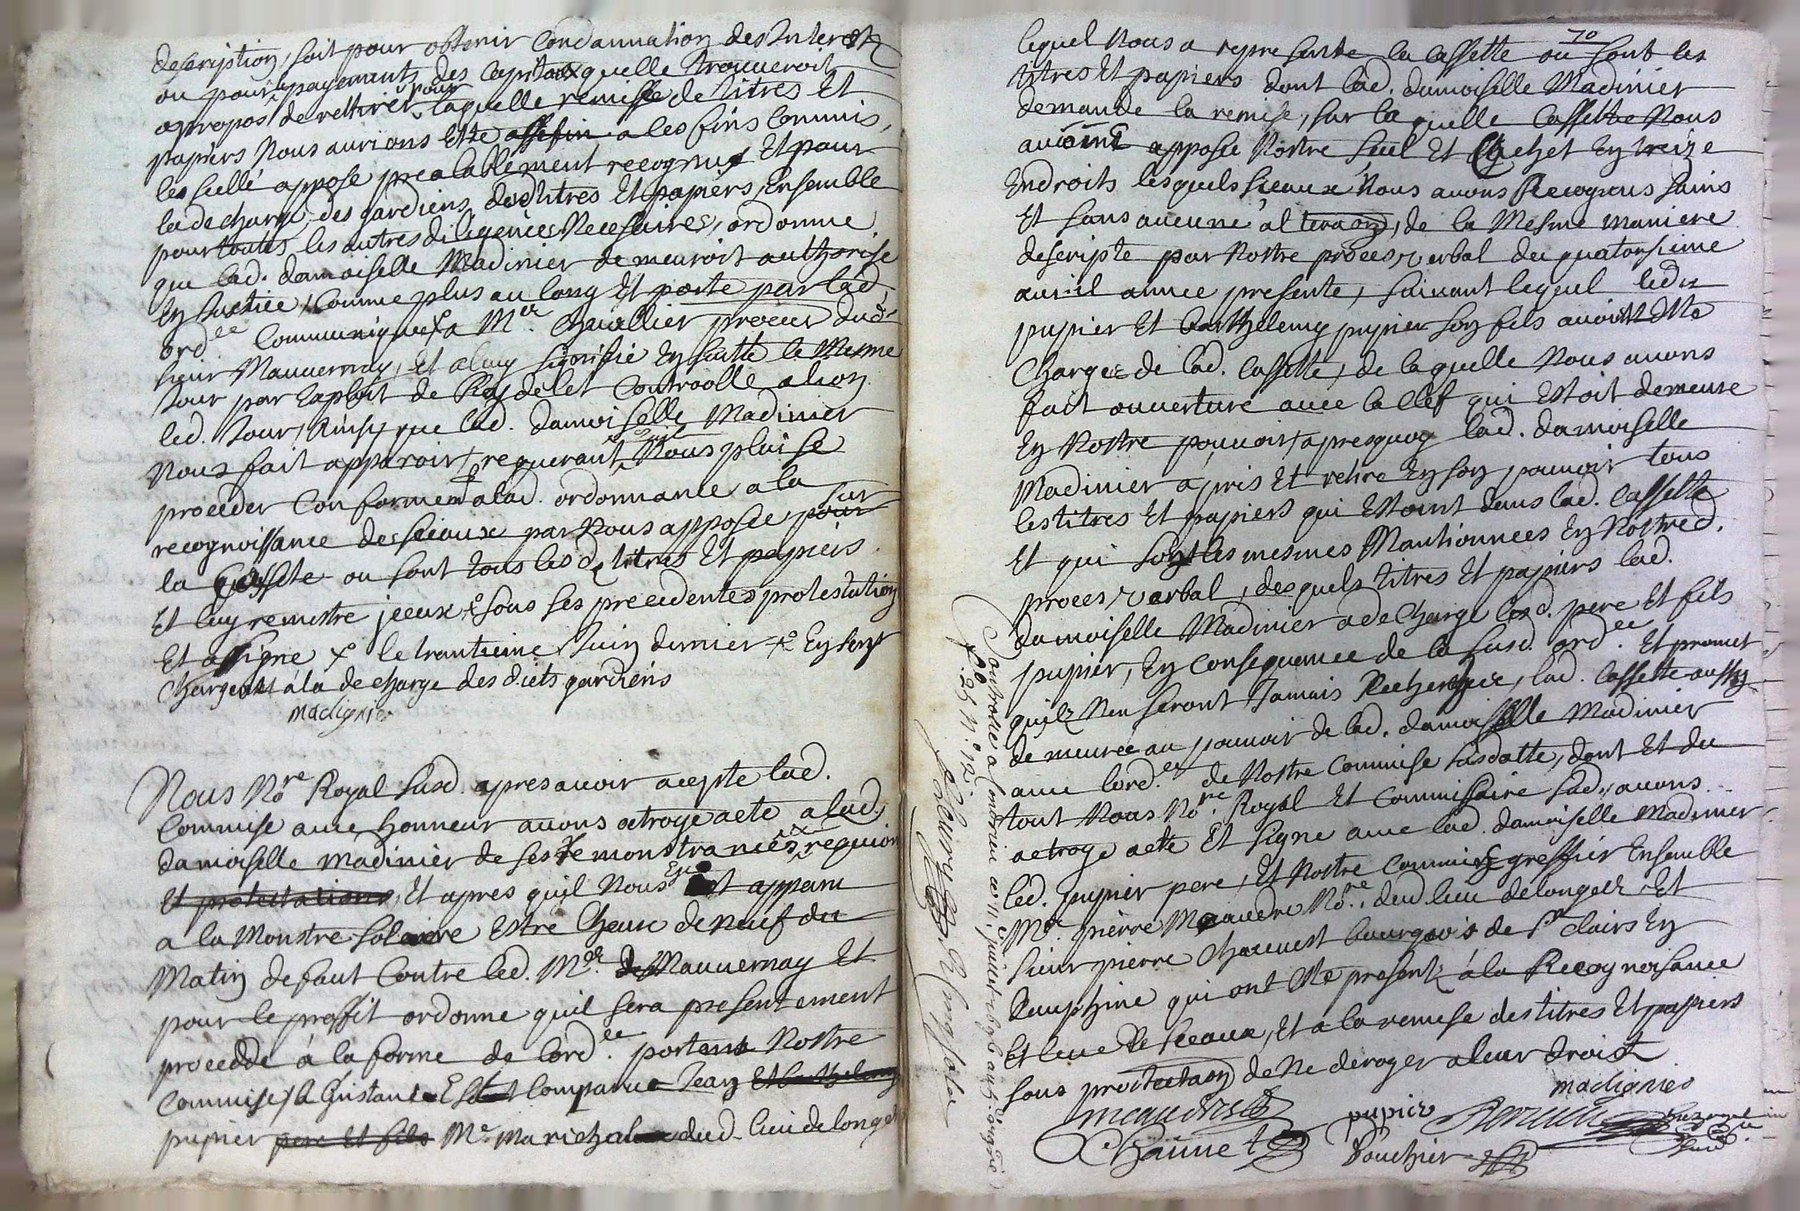 description, soit pour obtenir condamnation des Interestz
ou pour payements des Capitaux quelle trouveroit
apropos de rettirer pour laquelle remise de titres Et
papiers Nous aurions Este a les fins Commis,
les scellé appose prealablement recognus Et pour
la decharge des gardiens desd titres Et papiers, Ensemble
pour toutes les autres diligences Necessaires, ordonne
que lad. damoiselle Madinier demeuroit authorisé
En Justice, Comme plus au long Est porté par lad.
ord.ce Communiqué a Mr. procur dud.
sieur Mauvernay, Et a luy signifié En suitte le Mesme
Jour par Exploit de Controollé a lion
led. Jour, Ainsy que lad. damoiselle Madinier
Nous fait apparoir, requerant Nous plaise
proceder Conformemt a lad. ordonnance a la
recognoissance des sceaux par Nous apposée sur
la Cassette ou sont tous lesd. titres Et papiers
Et luy remettre jceux sous ses precedentes protestations
Et a signe le trantieme Juin dernier En sent
Chargeant a la decharge des diets gardiens
madignier
Nous No.re Royal susd. apres avoir acepté lad.
Commise avec honneur avons octroyé acte a lad.
damoiselle madinier de ses remonstrances, requion
Et protestations, Et apres quil Nous Est apparu
a la Monstre solaere Estre lheure de Neuf du
Matin defaut Contre led. Mauvernay Et
pour le proffit ordonné quil sera presentement
procedde à la forme de lord.ce portant Nostre
Commise, a linstant Est Comparu Jean Et barthelemy
pupier pere Et fils Me. Marichal dud. lieu de longes
70
lequel Nous a represanté la Cassette ou sont les
titres Et papiers dont lad. damoiselle Madinier
demande la remise, sur laquelle Cassette Nous
avions apposé Nostre scel Et Cachet En treize
Endroits lesquels sceaux Nous avons Recognus sains
Et sans aucune alteraon, de la Mesme maniere
descripte par Nostre proces, verbal du quatorsieme
avril annee presente, suivant lequel led.
pupier Et barthelemy pupier son fils avoint Esté
Chargez de lad. Cassette, de laquelle Nous avons
fait ouverture avec la clef qui Estoit demeuré
En Nostre pouvoir, apres quoy lad. damoiselle
Madinier a pris Et retiré En son pouvoir tous
les titres Et papiers qui Estoint dans lad. Cassette
Et qui sont les mesmes Mantionnees En Nostred.
proces, verbal, desquels titres Et papiers lad.
damoiselle Madinier a decharge lesd. pere Et fils
pupier, En consequence de la susd. ord.ce Et promet
quilz Nen seront Jamais Recherchez, lad. Cassette aussy
demeuree au pouvoir de lad. damoiselle Madinier
avec lord.ce de Nostre Commise susdatte, dont Et du
tout Nous No.re Royal Et Commissaire sud., avons
octroyé acte Et signe avec lad. damoiselle Madinier
led. pupier pere, Et Nostre Commis greffier Ensemble
Mr. pierre No.re dud lieu de longes Et
sieur pierre Chauvet bourgois de St. Clairs En
Dauphiné qui ont Esté presents à la Recognoisance
Et leve de sceaux, Et a la remise des titres Et papiers
sous protestaon de Ne deroger a leur droict
madignier
pupier
Bouchier
Controlle a Condrieu ce 11e juillet